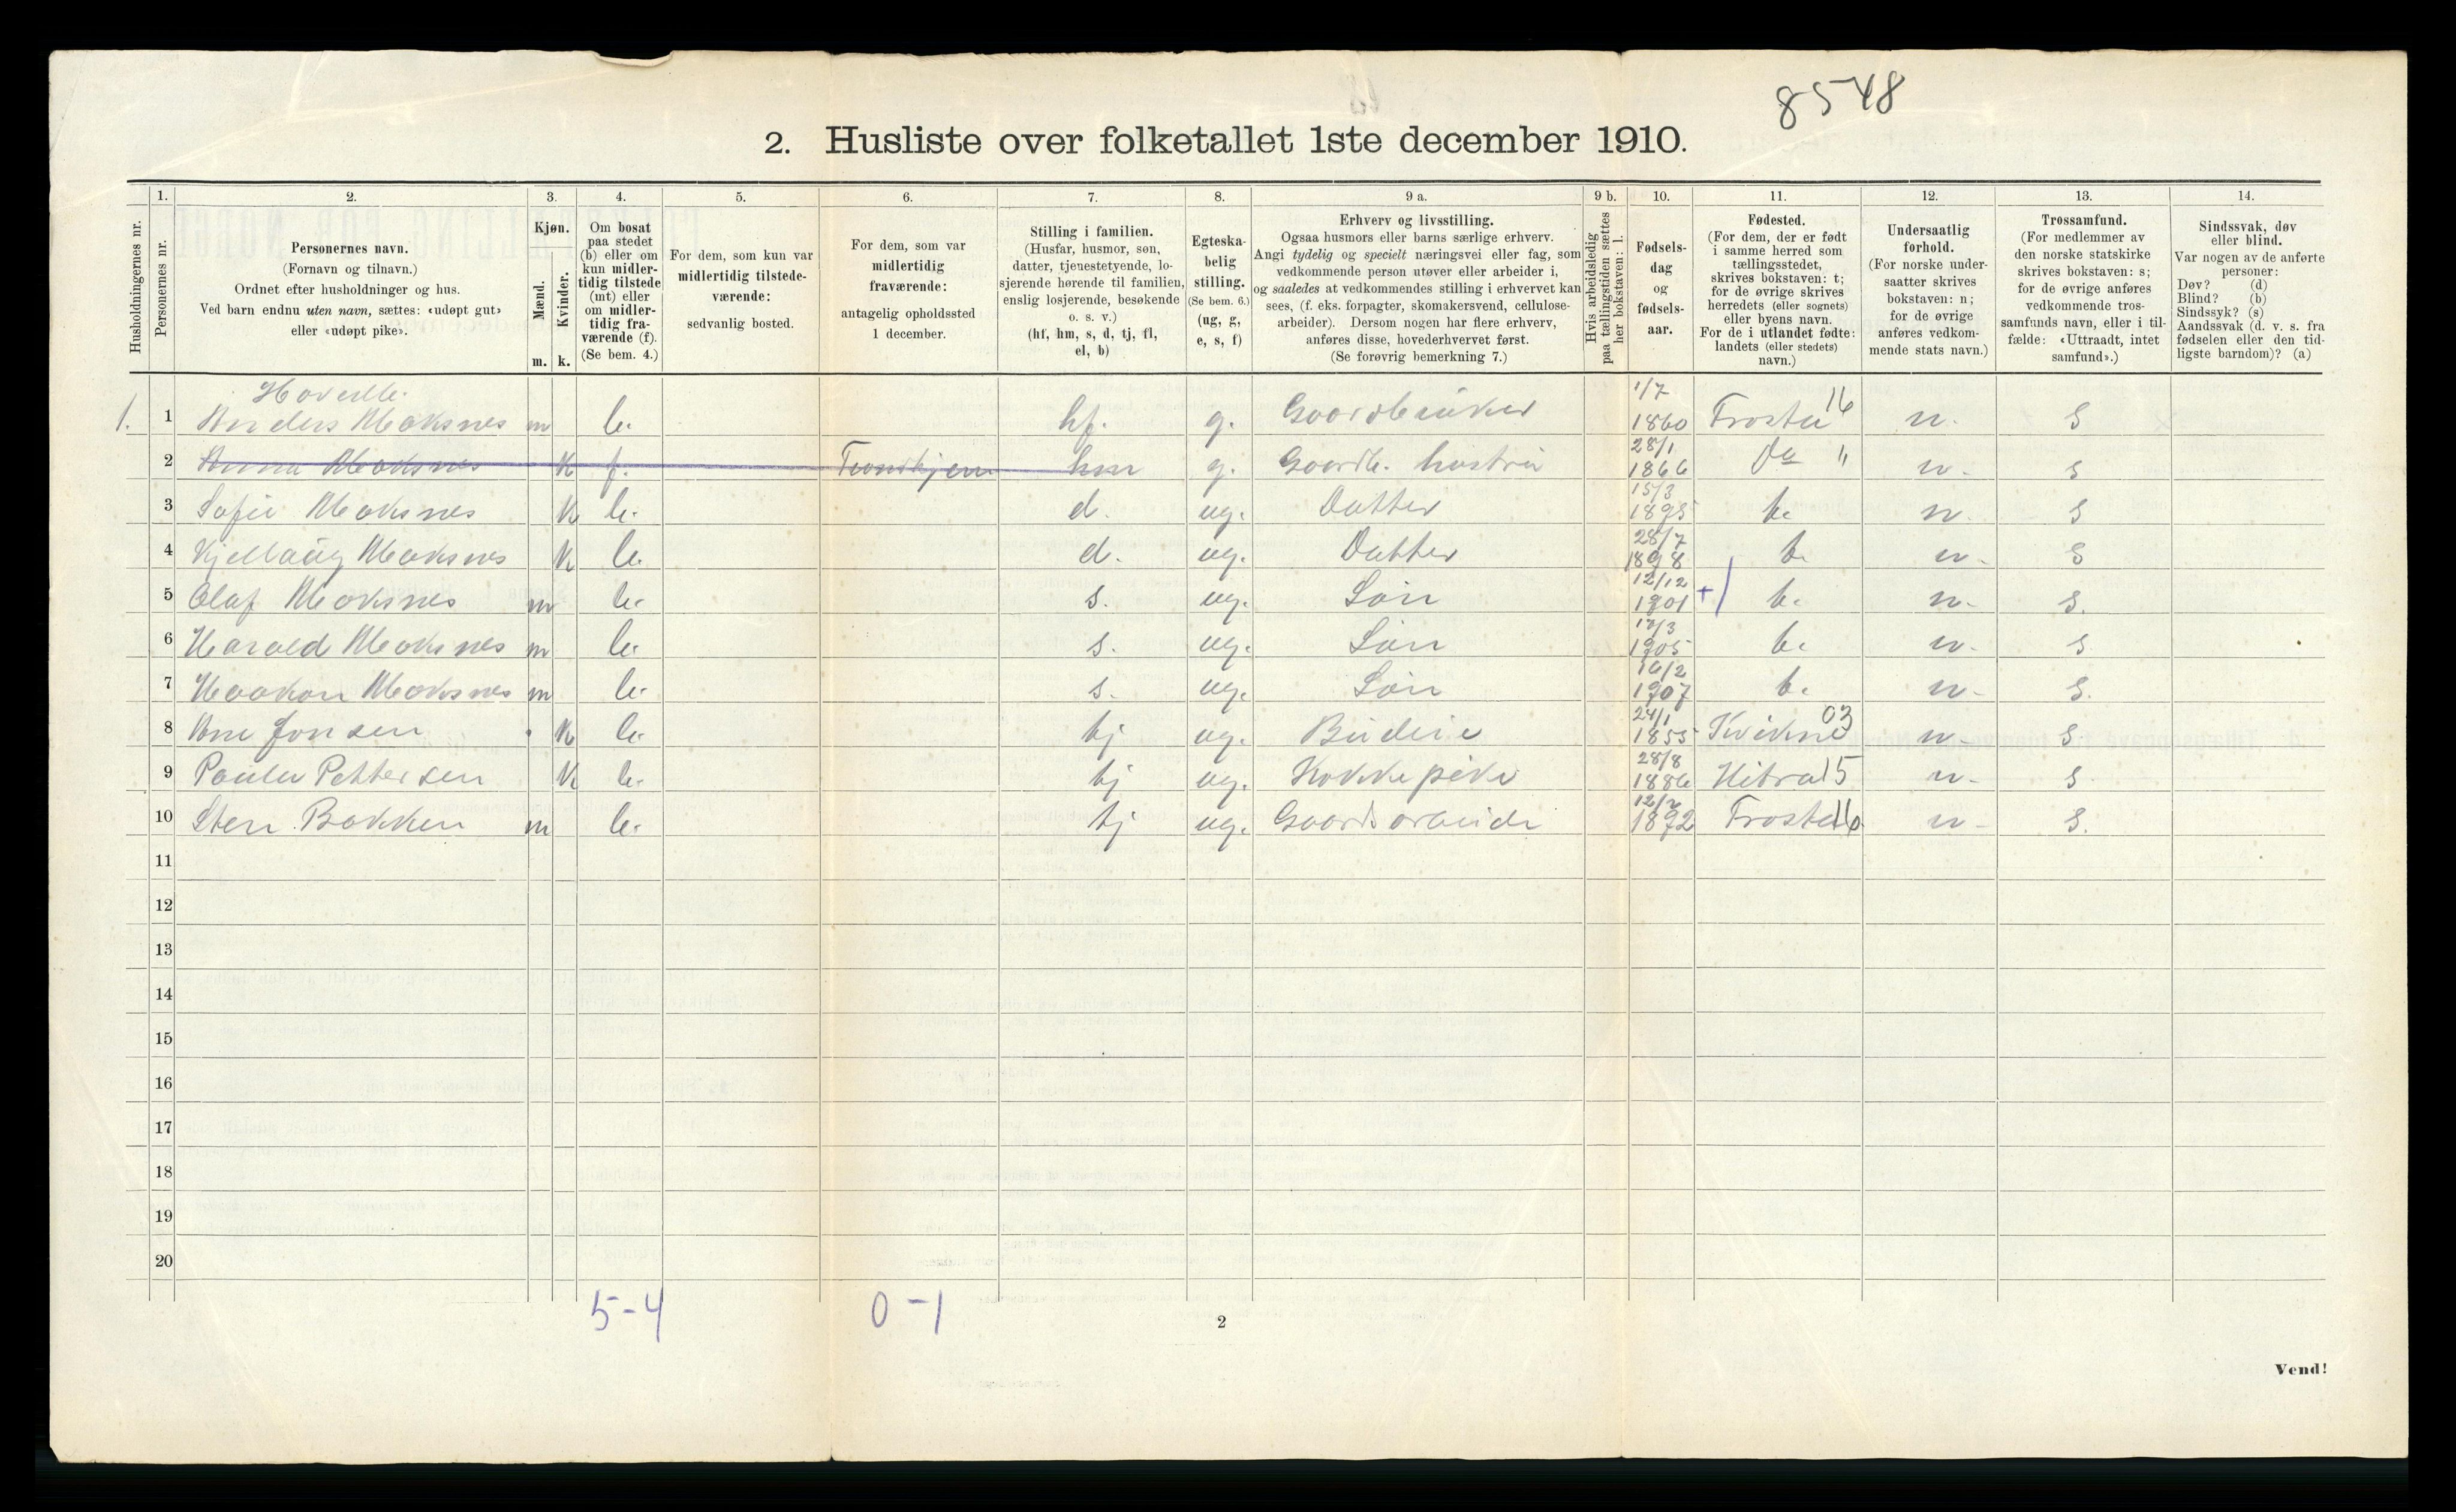 8548
2. Husliste over folketallet 1ste december 1910.
1. 2. 3. 4. 5. 6. 7. 8. 9 a. 9 b. 10. 11. 12. 13. 14.
Husholdningernes nr.
Personernes nr.
Personernes navn.
(Fornavn og tilnavn.)
Ordnet efter husholdninger og hus.
Ved barn endnu uten navn, sættes: «udøpt gut»
eller «udøpt pike».
Kjøn.
Mænd.
Kvinder.
m. k.
Om bosat
paa stedet
(b) eller om
kun midler-
tidig tilstede
(mt) eller
om midler-
tidig fra-
værende (f).
(Se bem. 4.)
For dem, som kun var
midlertidig tilstede-
værende:
sedvanlig bosted.
For dem, som var
midlertidig
fraværende:
antagelig opholdssted
1 december.
Stilling i familien.
(Husfar, husmor, søn,
datter, tjenestetyende, lo-
sjerende hørende til familien,
enslig losjerende, besøkende
o. s. v.)
(hf, hm, s, d, tj, fl,
el, b)
Egteska-
belig
stilling.
(Se bem. 6.)
(ug, g,
e, s, f)
Erhverv og livsstilling.
Ogsaa husmors eller barns særlige erhverv.
Angi tydelig og specielt næringsvei eller fag, som
vedkommende person utøver eller arbeider i,
og saaledes at vedkommendes stilling i erhvervet kan
sees, (f. eks. forpagter, skomakersvend, cellulose-
arbeider). Dersom nogen har flere erhverv,
anføres disse, hovederhvervet først.
(Se forøvrig bemerkning 7.)
Hvis arbeidsledig
paa tællingstiden sættes
her bokstaven: l.
Fødsels-
dag
og
fødsels-
aar.
Fødested.
(For dem, der er født
i samme herred som
tællingsstedet,
skrives bokstaven: t;
for de øvrige skrives
herredets (eller sognets)
eller byens navn.
For de i utlandet fødte:
landets (eller stedets)
navn.)
Undersaatlig
forhold.
(For norske under-
saatter skrives
bokstaven: n;
for de øvrige
anføres vedkom-
mende stats navn.)
Trossamfund.
(For medlemmer av
den norske statskirke
skrives bokstaven: s;
for de øvrige anføres
vedkommende tros-
samfunds navn, eller i til-
fælde: «Uttraadt, intet
samfund».)
Sindssvak, døv
eller blind.
Var nogen av de anførte
personer:
Døv? (d)
Blind? (b)
Sindssyk? (s)
Aandssvak (d. v. s. fra
fødselen eller den tid-
ligste barndom)? (a)
1. 1 Anders Moksnes m b. hf. g. Gaardbruker 1/7 1860 Frosta 16 n. s
2 Anna Moksnes K f. Trondhjem hm g. Gaardb. hustru 28/1 1866 Do " n. s
3 Sofie Moksnes K b. d. ug. Datter 15/3 1895 t. n. s
4 Kjellaug Moksnes K b. d. ug. Datter 28/7 1898 t. n. s
5 Olaf Moksnes m b. s. ug. Søn 12/12 1901 t. n. s.
6 Harald Moksnes m b. s. ug. Søn 17/3 1905 t. n. s
7 Haakon Moksnes m b. s. ug. Søn 16/2 1907 t. n. s.
8 Ane Jonsen K b. tj ug. Budeie 24/1 1855 Kvikne 03 n. s
9 Paula Pettersen K b. tj ug. Kokkepike 28/8 1886 Hitra 15 n. s
10 Sten Bakken m b. tj ug. Gaardsarbeide 12/2 1892 Frosta 16 n. s.
11
12
13
14
15
16
17
18
19
20
5-4 0-1
2
Vend!